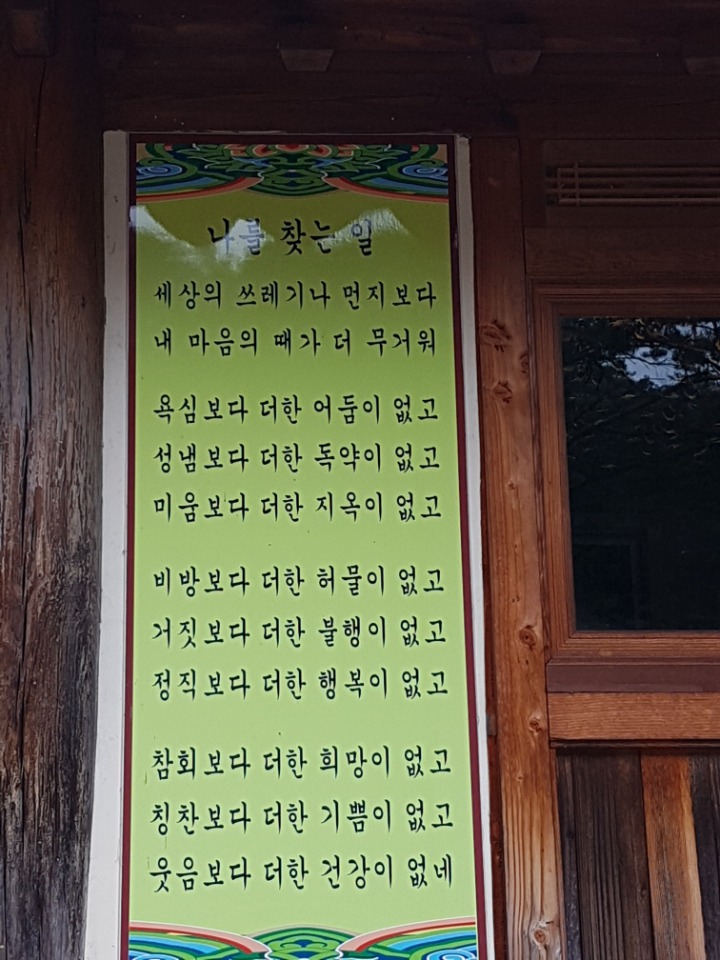 나를 찾는 일
세상의 쓰레기나 먼지보다
내 마음의 때가 더 무거워
욕심보다 더한 어둠이 없고
성냄보다 더한 독약이 없고
미움보다 더한 지옥이 없고
비방보다 더한 허물이 없고
거짓보다 더한 불행이 없고
정직보다 더한 행복이 없고
참회보다 더한 희망이 없고
칭찬보다 더한 기쁨이 없고
웃음보다 더한 건강이 없네